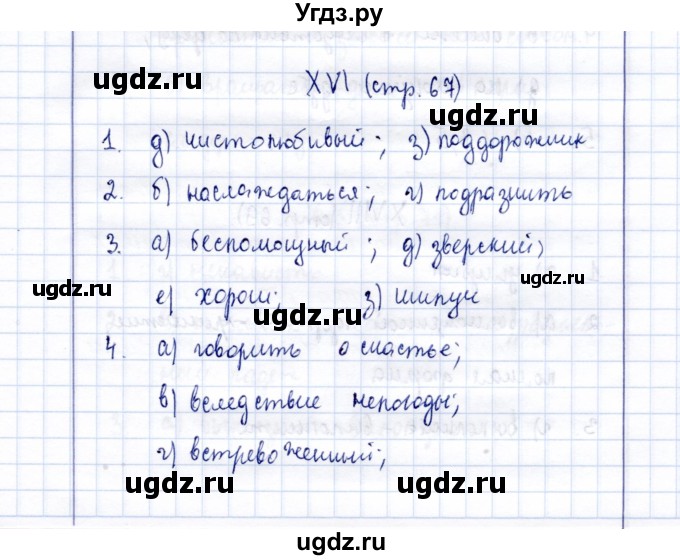 Угдз.ру
ugdz.ru
XVI (стр. 67)
ugdz.ru
1. д) чистолюбивый; з) поддорожник
ugdz.ru
2. б) наслаждаться; г) подразнить
3. а) беспомощный; д) зверский;
ugdz.ru ugdz.ru
е) хорош; з) шипуч
ugdz.ru
4. а) говорить о счастье;
в) вследствие непогоды;
г) встревоженный;
ugdz.ru ugdz.ru ugdz.ru